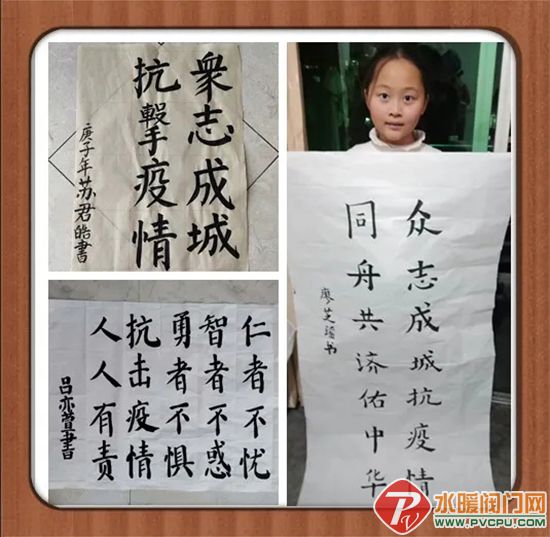 衆志成城
抗擊疫情
庚子年苏君皓書
仁者不忧
智者不惑
勇者不惧
抗击疫情
人人有责
吕亦萱書
众志成城抗疫情
同舟共济佑中华
廖芝书
PV
水暖阀门网
WWW.PVCPU.COM